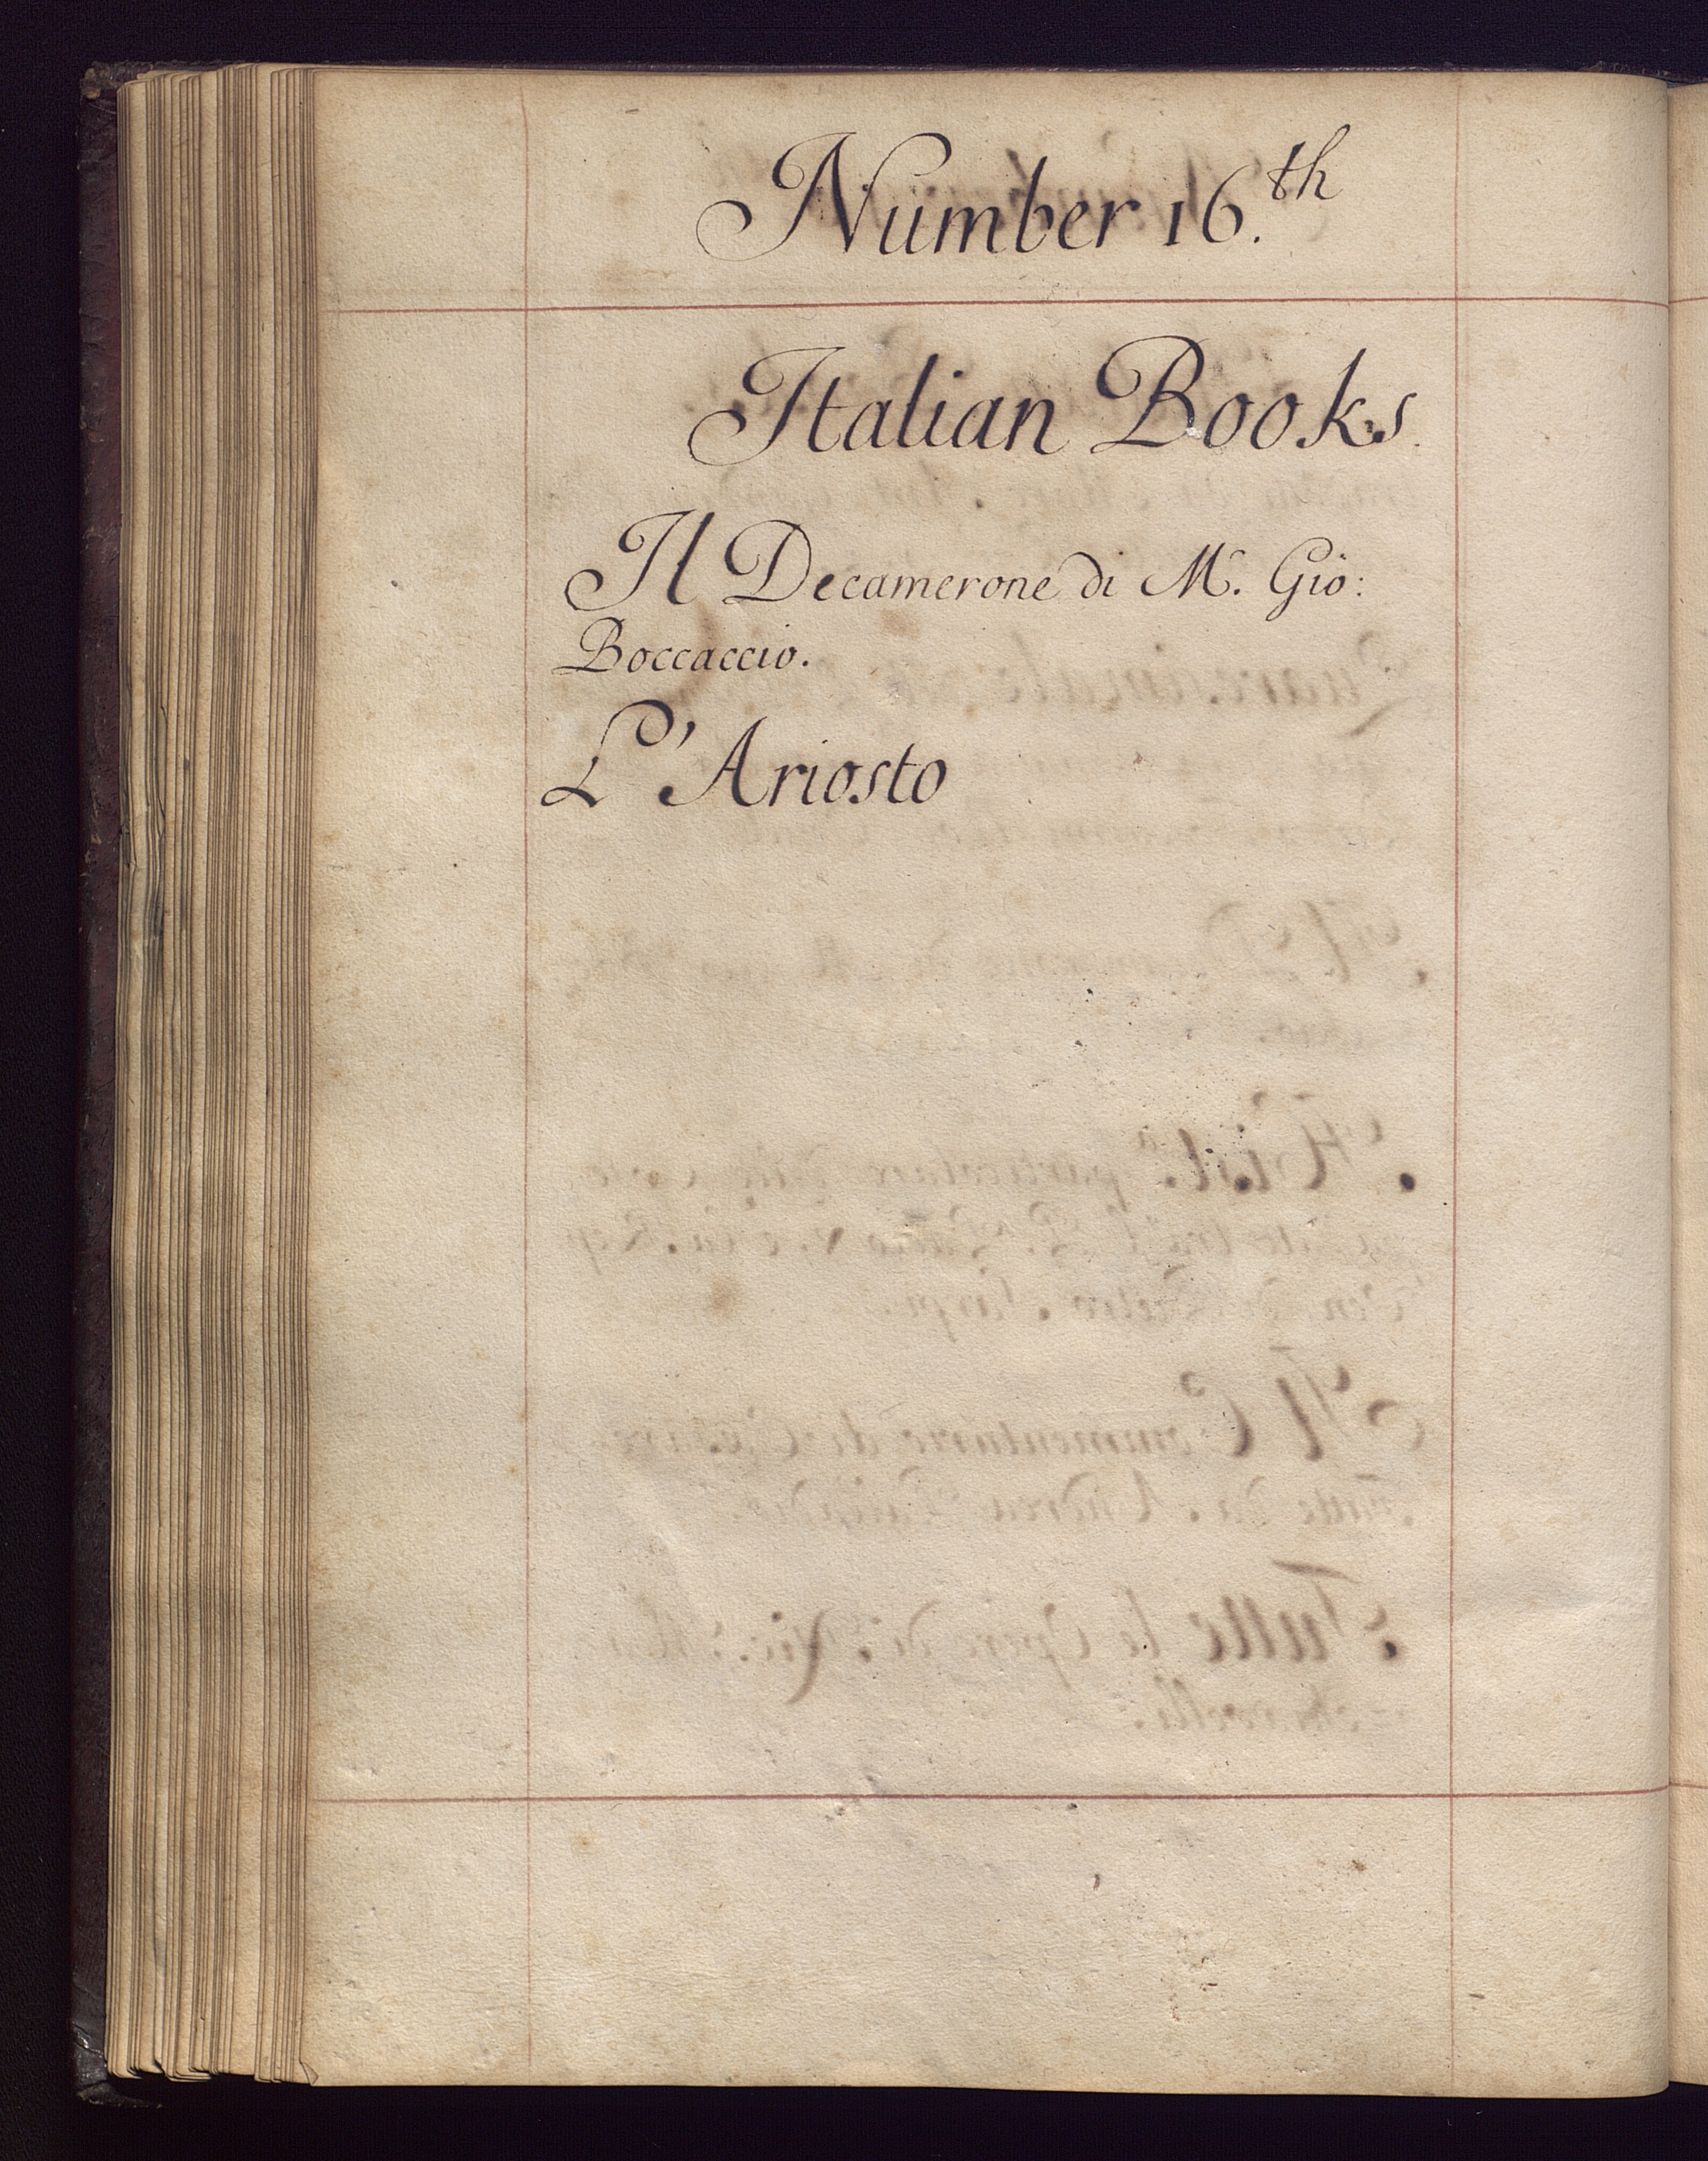 Number 16.th
Italian Books.
Il Decamerone di M. Gio:
Boccaccio.
L'Ariosto